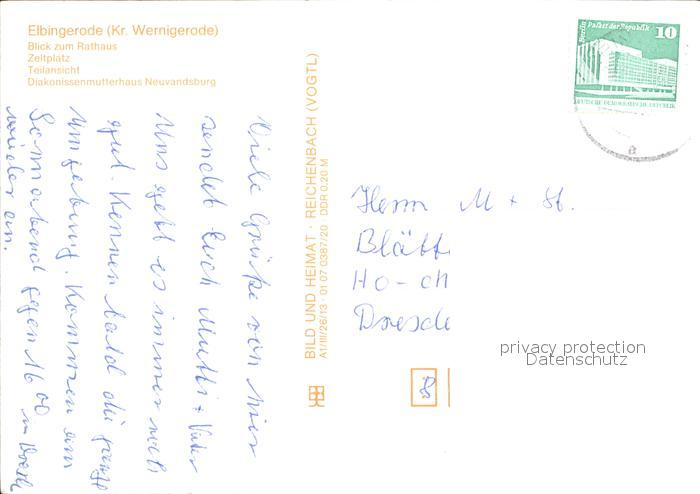 Elbingerode (Kr. Wernigerode)
Blick zum Rathaus
Zeltplatz
Teilansicht
Diakonissenmutterhaus Neuvandsburg
Viele Grüße von hier
sendet Euch Mutti + Vater
Uns geht es immer noch
gut. Kennen bald die ganze
Umgebung. Kommen am
Sonnabend gegen 16 00 in
wieder an.
BILD UND HEIMAT · REICHENBACH (VOGTL)
A1/III/26/13 · 01 07 0387/20 DDR 0,20 M
Berlin Palast der Republik 10
DEUTSCHE DEMOKRATISCHE REPUBLIK
a
Herrn M + St.
Blätt
Ho-ch
Dresde
8
privacy protection
Datenschutz